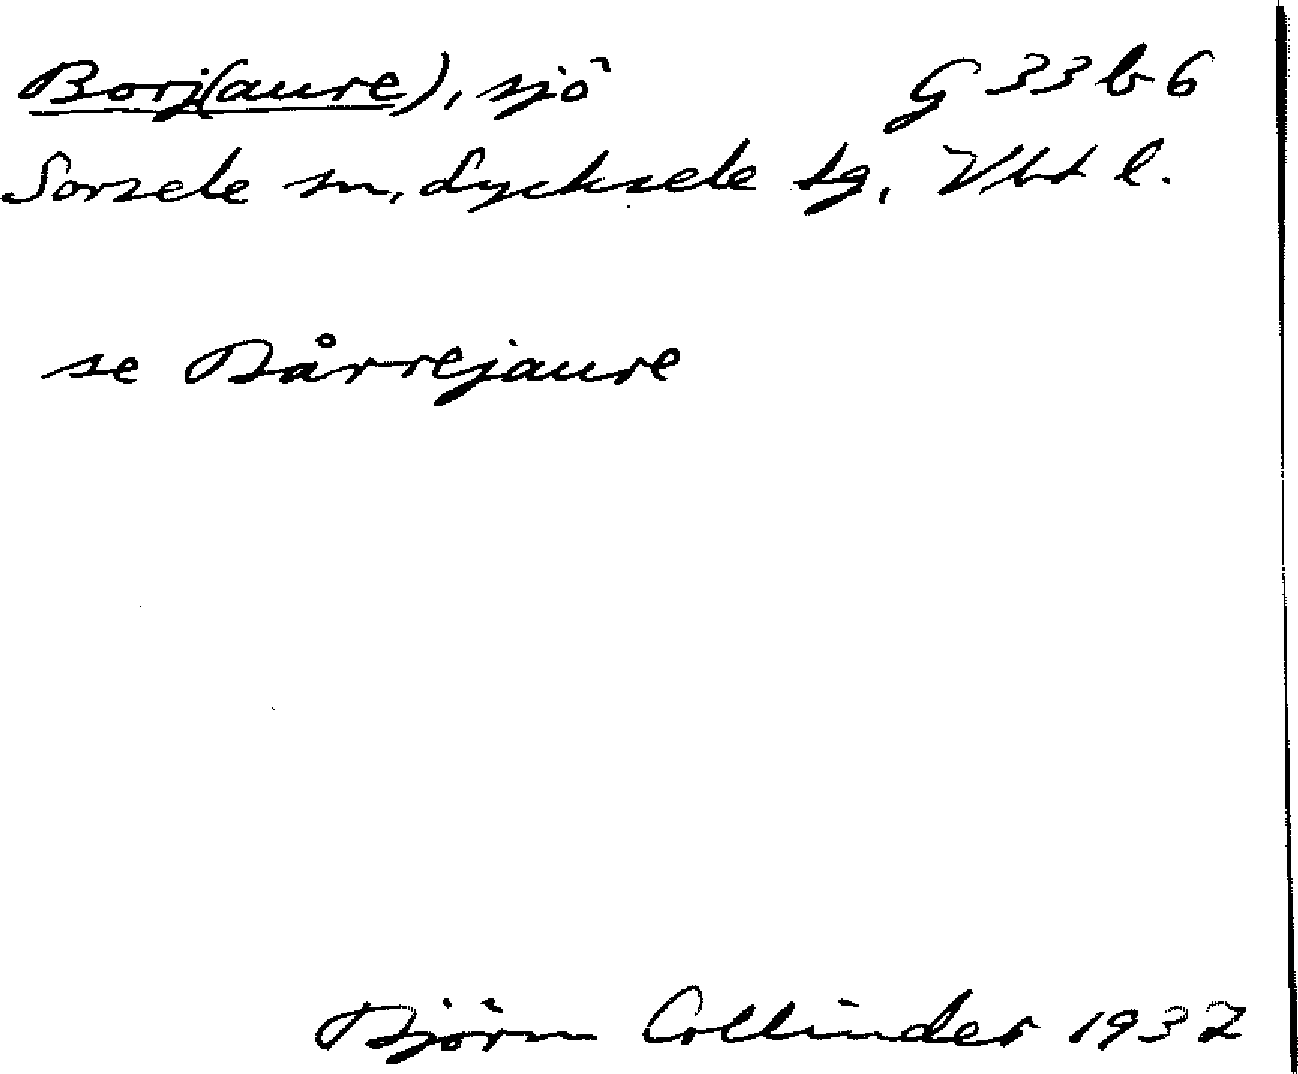 Borj(aure), sjö G 33 b 6
Sorsele sn, Lycksele tg, Vbt l.
se Bårrejaure
Björn Collinder 1932